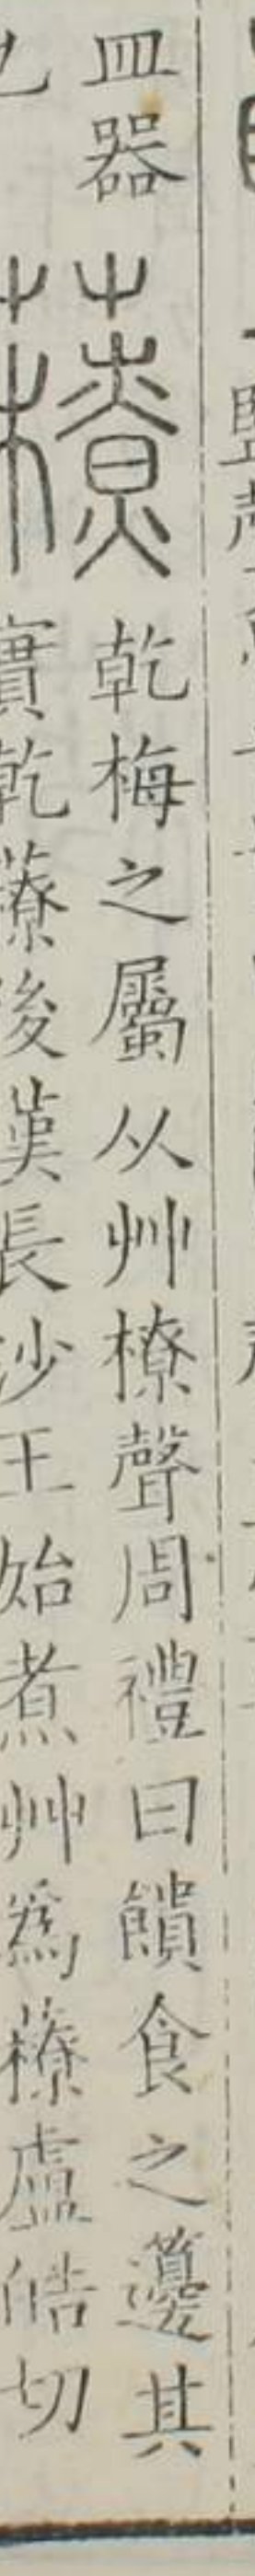 皿器 䕩 乾梅之屬从艸橑聲周禮曰饋食之籩其
實乾䕩後漢長沙王始煮艸爲䕩盧皓切